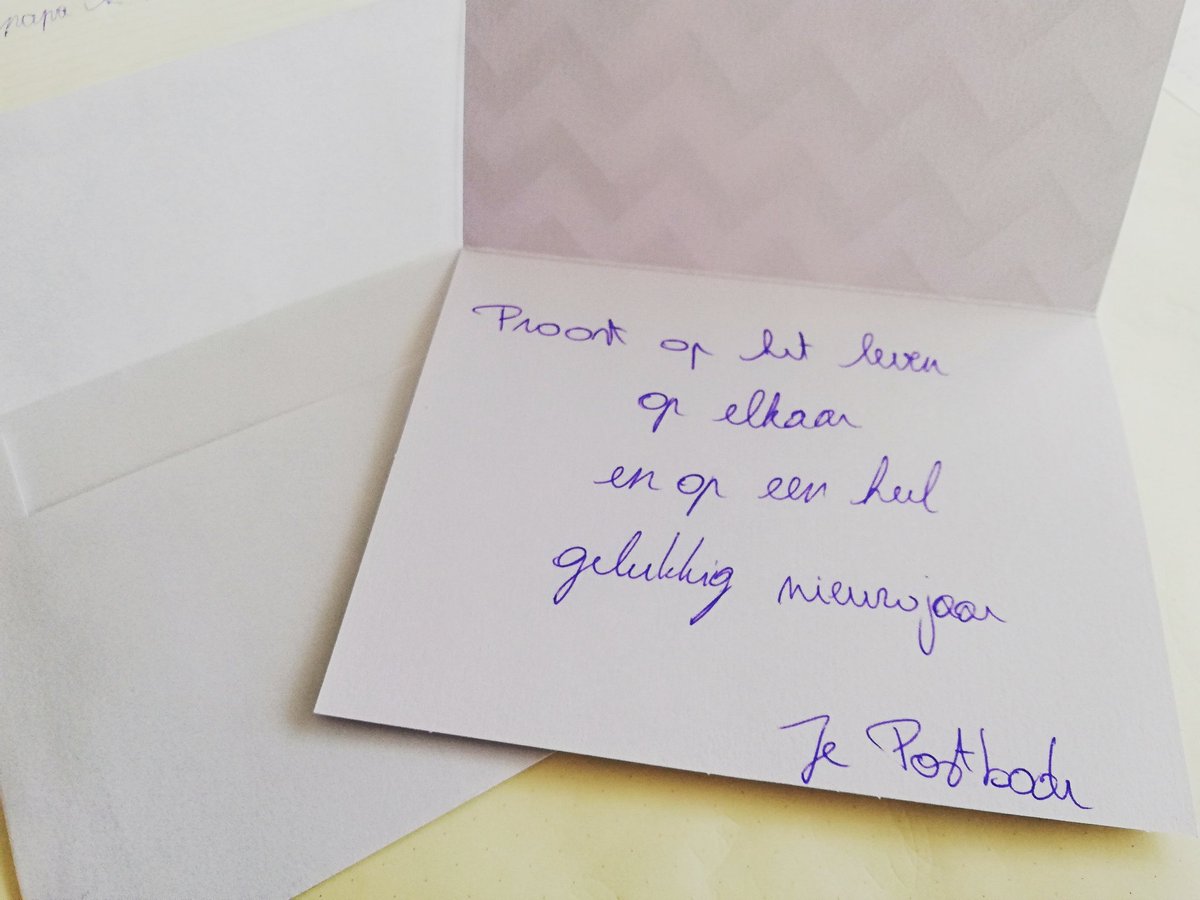 papa
Proost op het leven
op elkaar
en op een heel
gelukkig nieuwjaar
Je Postbode